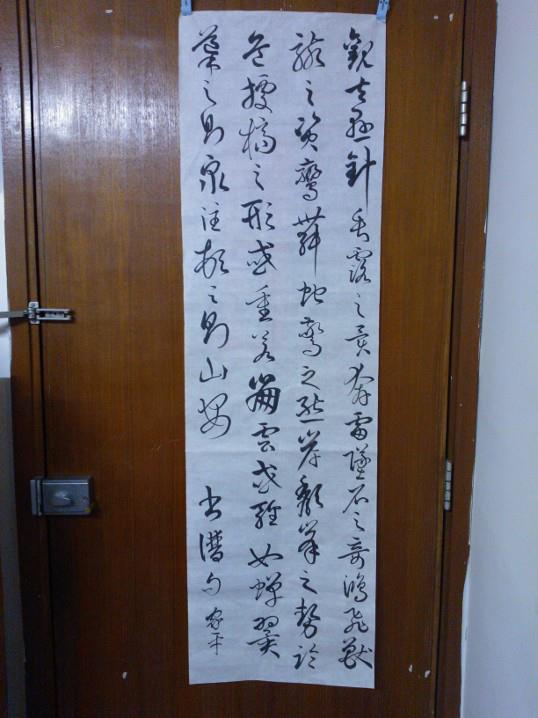 觀夫懸針垂露之異奔雷墜石之奇鴻飛獸
駭之資鸞舞蛇驚之態岸頹峯之勢臨
危據槁之形或重若崩雲或輕如蟬翼
導之則泉注頓之則山安 書譜句 家平